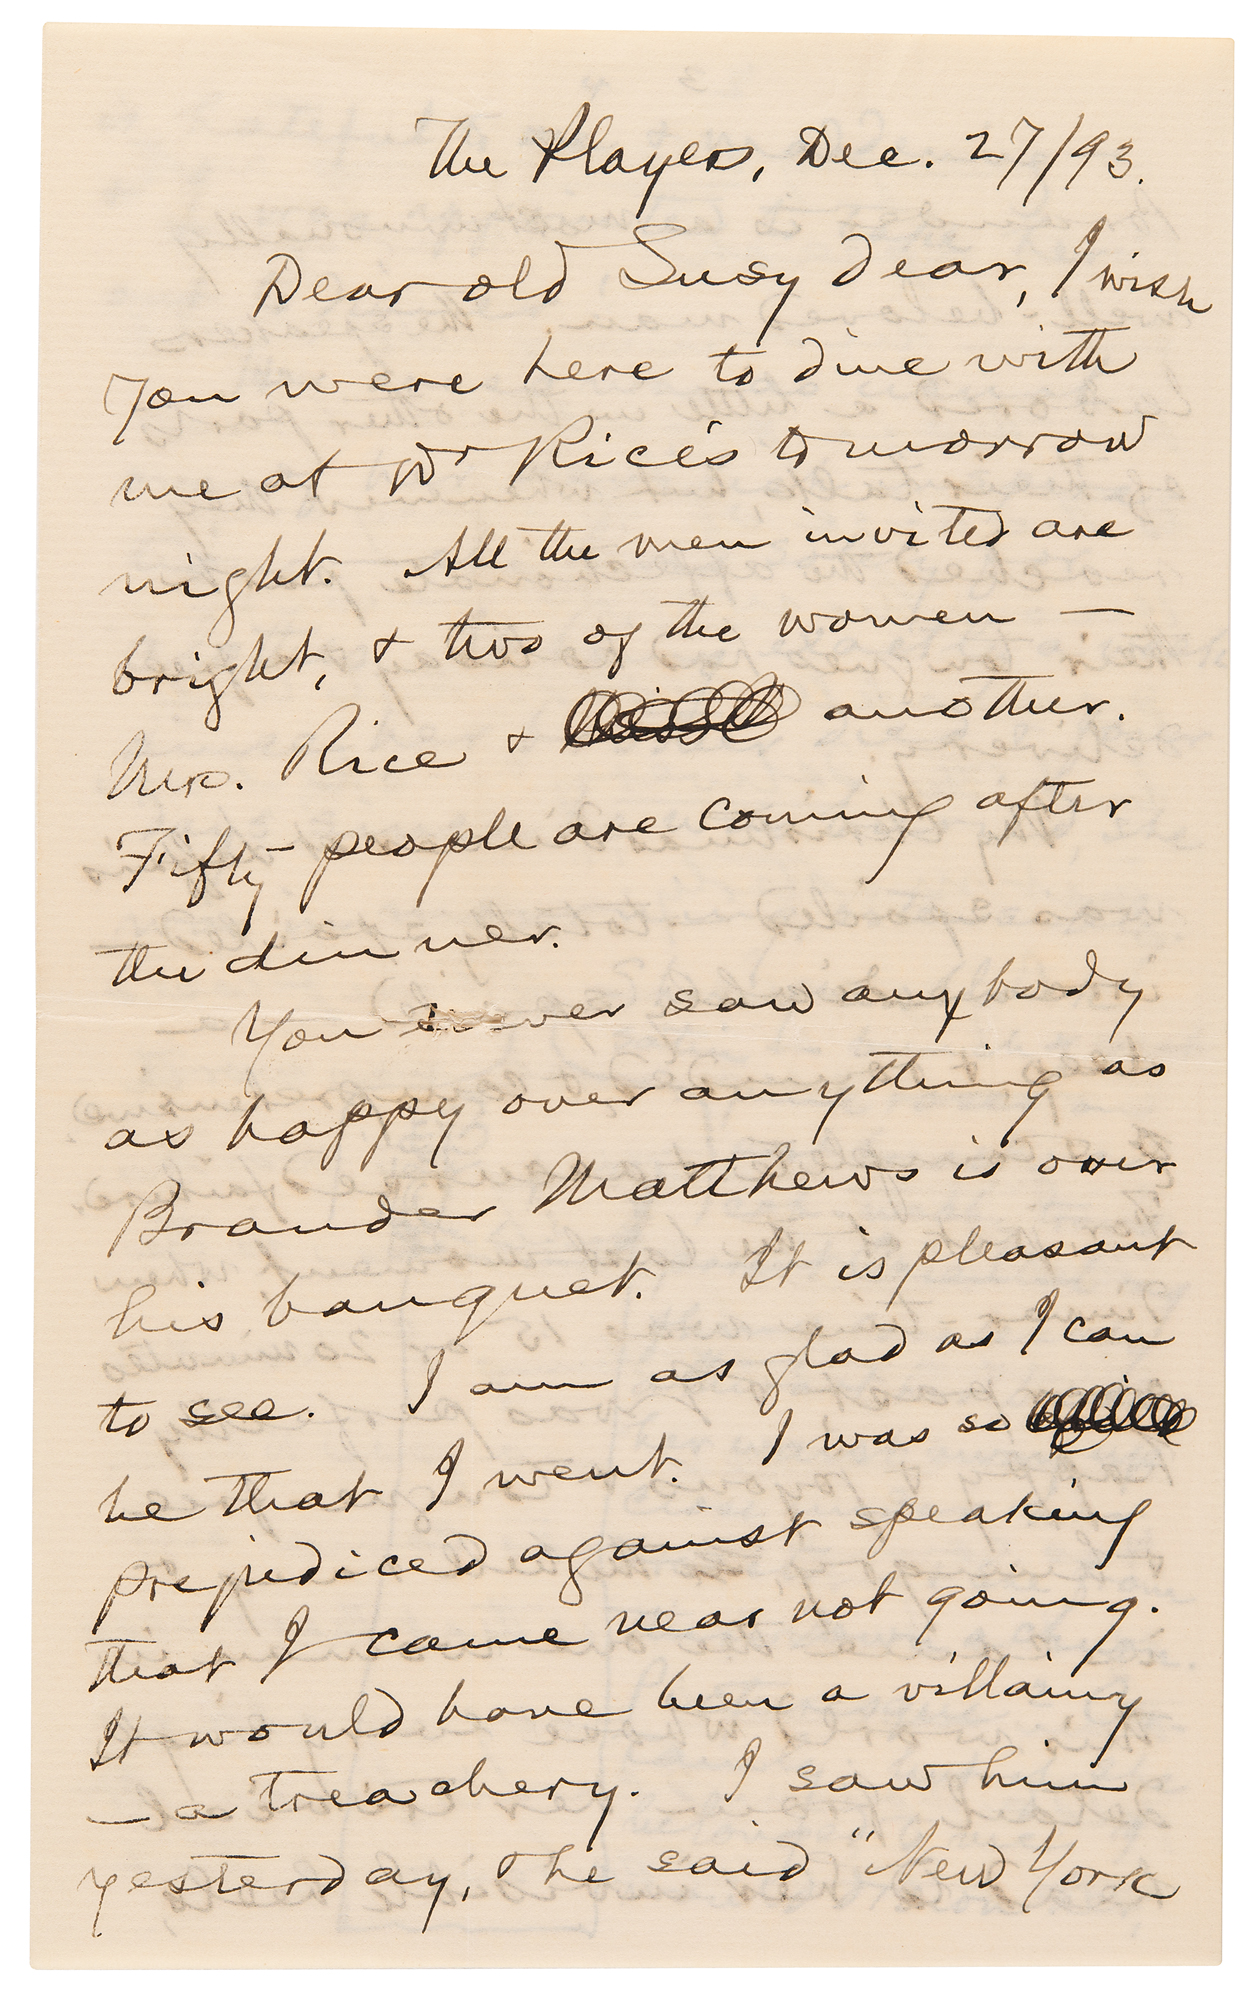 The Players, Dec. 27/93.
Dear old Susy dear, I wish
you were here to dine with
me at Dr Rice's tomorrow
night. All the men invited are
bright, & two of the women —
Mrs. Rice & another.
Fifty people are coming after
the dinner.
You never saw anybody
as happy over anything as
Brander Matthews is over
his banquet. It is pleasant
to see. I am as glad as I can
be that I went. I was so
prejudiced against speaking
that I came near not going.
It would have been a villainy
— a treachery. I saw him
yesterday, & he said "New York